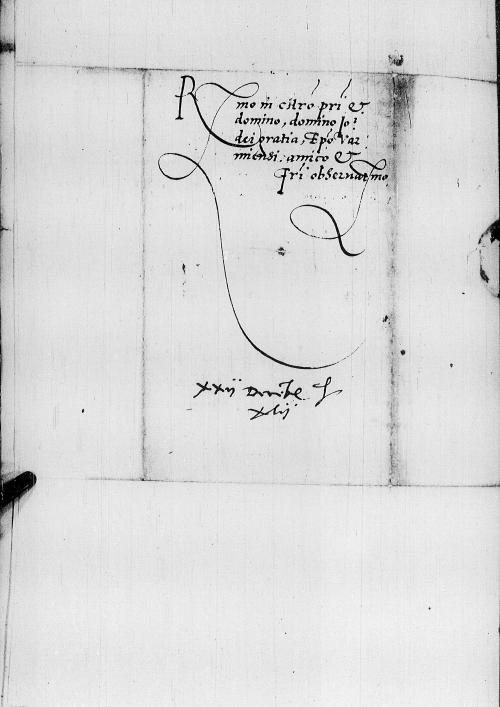 Rmo in chrō pri et
domino, domino Jo:
dei gratia, Epō Var
miensi. amico et
fri obseruatmo.
XXII Decēbr
XLII